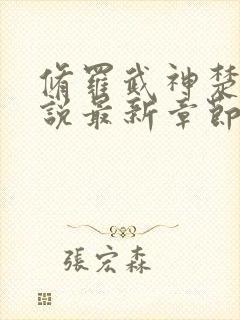 脩羅武神楚
說最新章節
張宏森